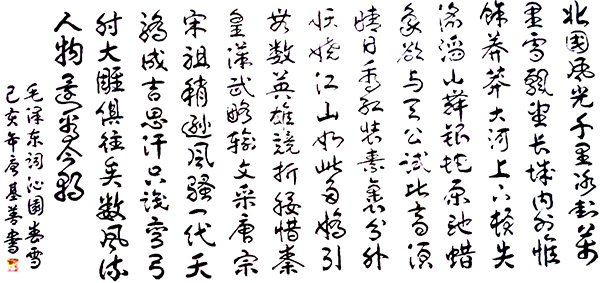 北國风光千里冰封萬
里雪飄望长城内外惟
餘莽莽大河上下頓失
滔滔山舞银蛇原驰蜡
象欲与天公试比高须
晴日看红装素裹分外
妖娆江山如此多娇引
无数英雄競折腰惜秦
皇漢武略输文采唐宗
宋祖稍逊风骚一代天
骄成吉思汗只识弯弓
射大雕俱往矣数风流
人物還看今朝
毛泽东词沁园春雪
己亥年唐基善書